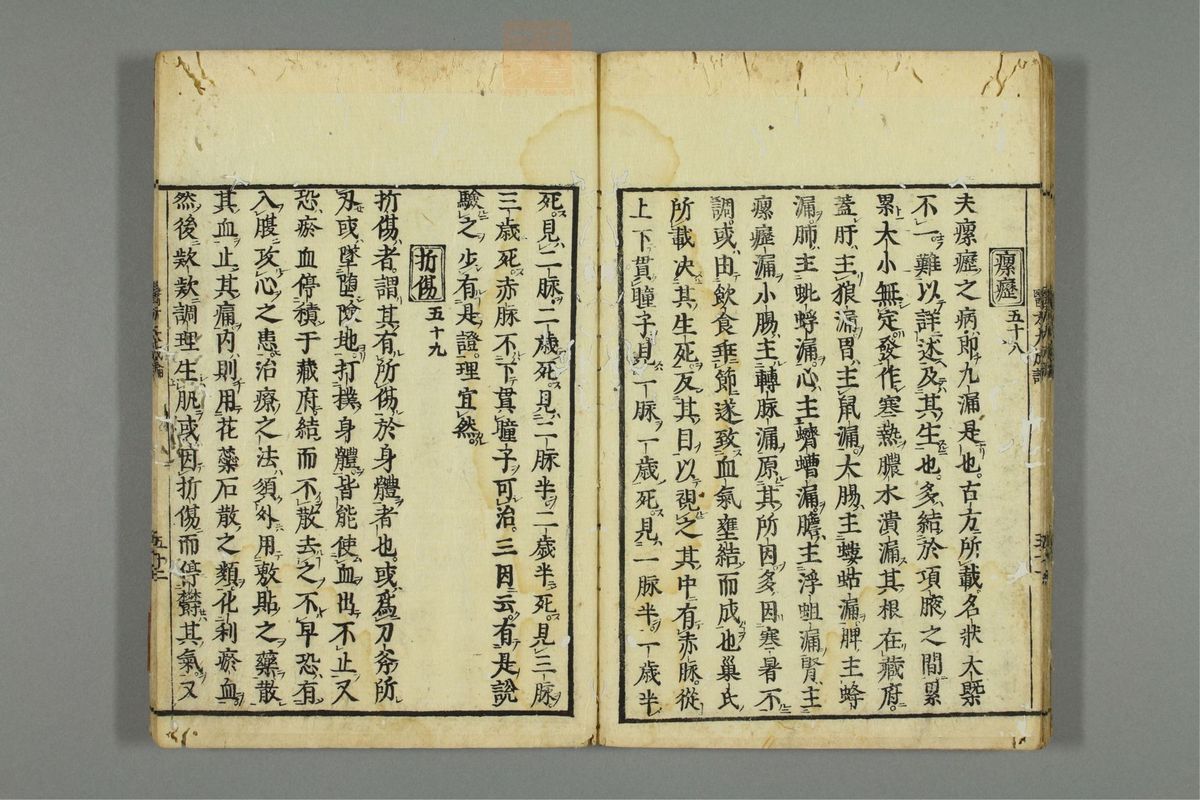 瘰癧 五十八
夫瘰癧之病即九漏是也古方所載名狀大槩
不一難以詳述及其生也多結於項腋之間累
累大小無定發作寒熱膿水潰漏其根在藏府
蓋肝主狼漏胃主鼠漏大腸主螻蛄漏脾主蜂
漏肺主蚍蜉漏心主蠐螬漏膽主浮蛆漏腎主
瘰癧漏小腸主轉脉漏原其所因多因寒暑不
調或由飲食乖節遂致血氣壅結而成也巢氏
所載决其生死反其目以視之其中有赤脉從
上下貫瞳子見一脉一歲死見一脉半一歲半
死見二脉二歲死見二脉半二歲半死見三脉
三歲死赤脉不下貫瞳子可治三因云有是說
驗之少有是證理宜然
折傷 五十九
折傷者謂其有所傷於身體者也或爲刀斧所
刃或墜堕險地打撲身體皆能使血出不止又
恐瘀血停積于藏府結而不散去之不早恐有
入腹攻心之患治療之法須外用敷貼之藥散
其血止其痛内則用花藥石散之類化利瘀血
然後欵欵調理生肌或因折傷而停欝其氣又